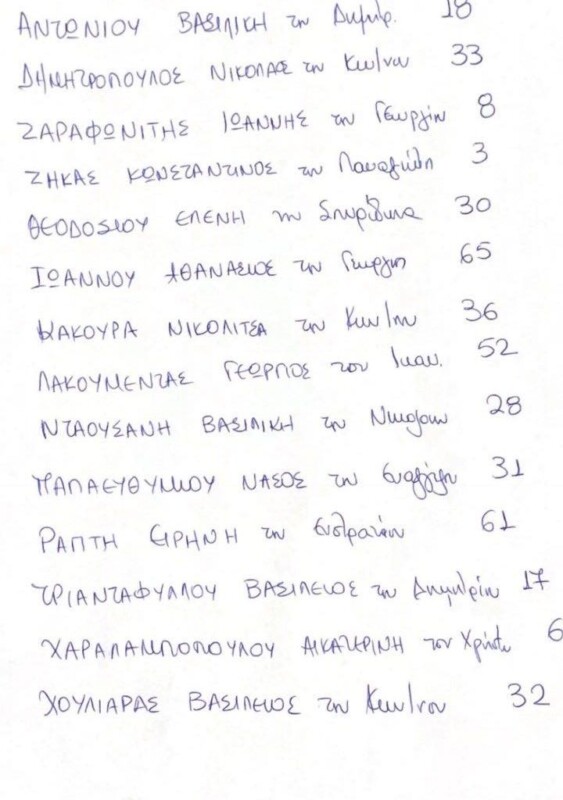 ΑΝΤΩΝΙΟΥ ΒΑΣΙΛΙΚΗ του Δημητρ. 18
ΔΗΜΗΤΡΟΠΟΥΛΟΣ ΝΙΚΟΛΑΣ του Κων/νου 33
ΖΑΡΑΦΩΝΙΤΗΣ ΙΩΑΝΝΗΣ του Γεωργίου 8
ΖΗΚΑΣ ΚΩΝΣΤΑΝΤΙΝΟΣ του Παναγιώτη 3
ΘΕΟΔΟΣΙΟΥ ΕΛΕΝΗ του Σπυρίδωνα 30
ΙΩΑΝΝΟΥ ΑΘΑΝΑΣΙΟΣ του Γεωργίου 65
ΚΑΚΟΥΡΑ ΝΙΚΟΛΙΤΣΑ του Κων/νου 36
ΛΑΚΟΥΜΕΝΤΑΣ ΓΕΩΡΓΙΟΣ του 52
ΝΤΑΟΥΣΑΝΗ ΒΑΣΙΛΙΚΗ του Νικολάου 28
ΠΑΠΑΕΥΘΥΜΙΟΥ ΝΑΣΟΣ του Ευαγγέλου 31
ΡΑΠΤΗ ΕΙΡΗΝΗ του Ευστρατίου 61
ΤΡΙΑΝΤΑΦΥΛΛΟΥ ΒΑΣΙΛΕΙΟΣ του Δημητρίου 17
ΧΑΡΑΛΑΜΠΟΠΟΥΛΟΥ ΑΙΚΑΤΕΡΙΝΗ του Χρήστου 6
ΧΟΥΛΙΑΡΑΣ ΒΑΣΙΛΕΙΟΣ του Κων/νου 32